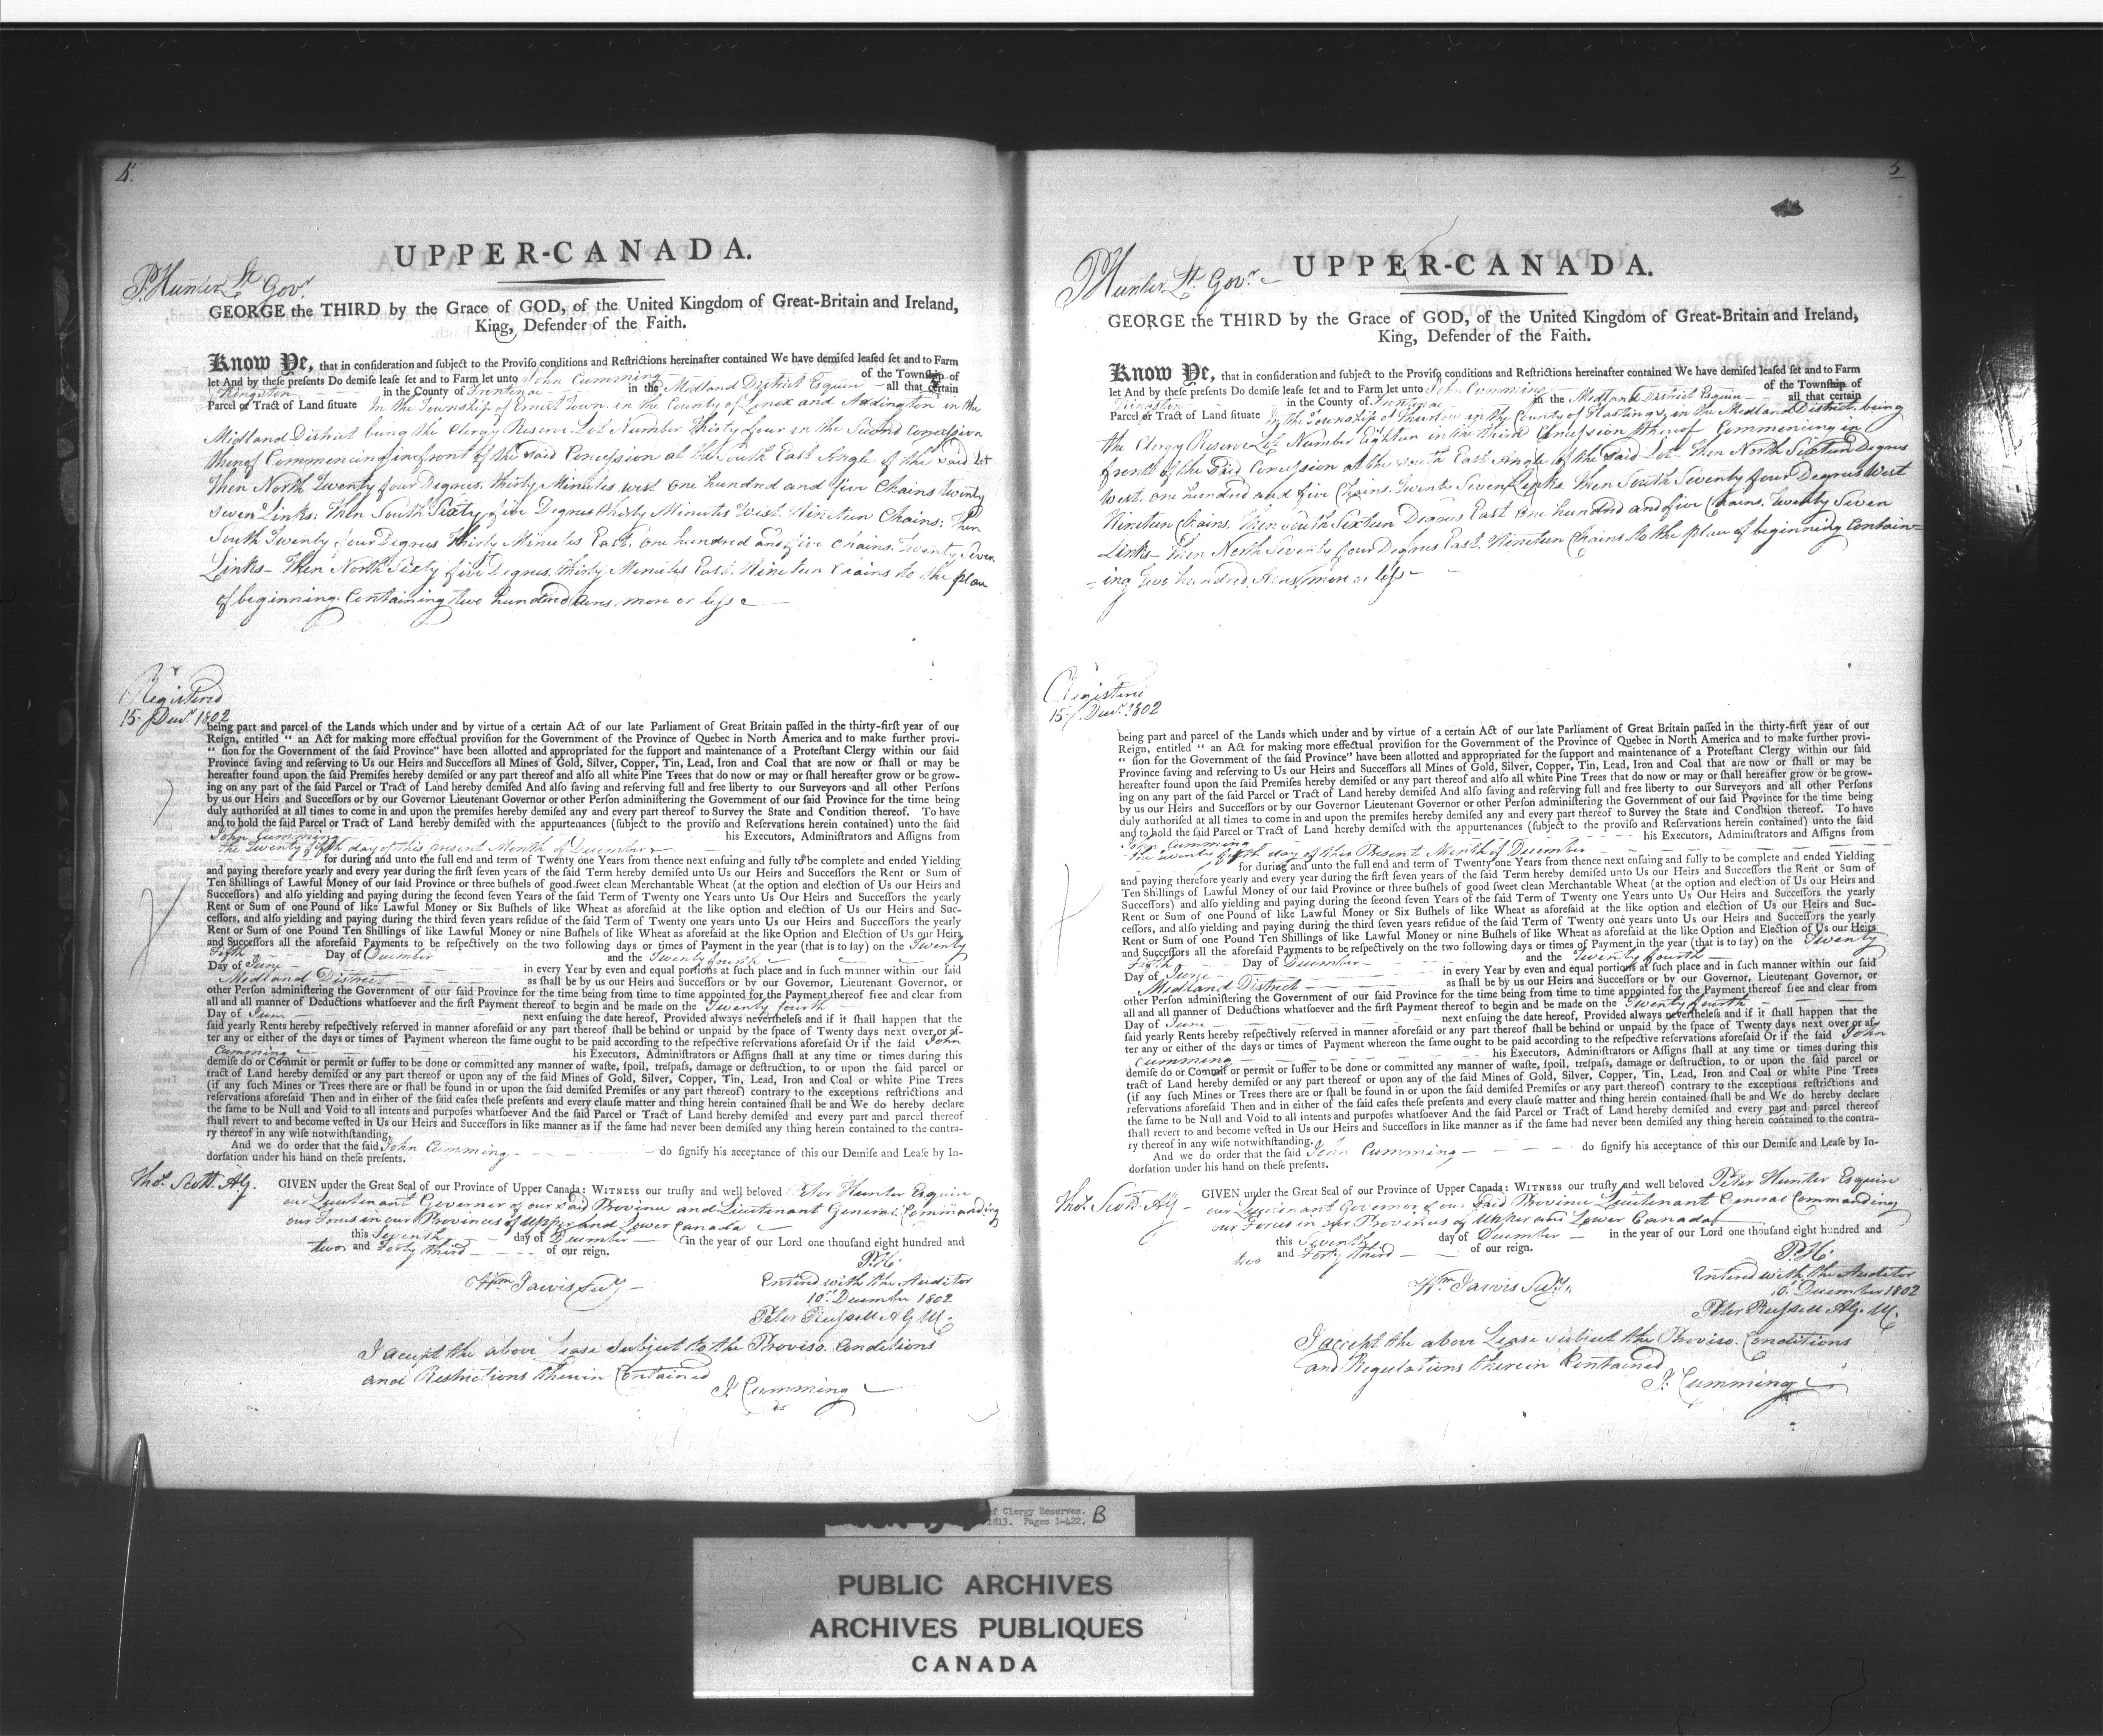 4.
UPPER-CANADA.
P. Hunter Lt. Govr.
GEORGE the THIRD by the Grace of GOD, of the United Kingdom of Great-Britain and Ireland,
King, Defender of the Faith.
Know Ye, that in conſideration and subject to the Proviſo conditions and Reſtrictions hereinafter contained We have demiſed leaſed ſet and to Farm
let And by theſe preſents Do demiſe leaſe ſet and to Farm let unto John Cumming of the Township of
Kingston in the County of Frontenac in the Midland District Esquire all that certain
Parcel or Tract of Land ſituate In the Township of Ernest Town in the County of Lenox and Addington in the
Midland District being the Clergy Reserve Lot Number Thirty four in the Second Concession
thereof Commencing in front of the said Concession at the South East Angle of the said Lot
Then North Twenty four Degrees, thirty Minutes west one hundred and five Chains twenty
seven Links: Then South Sixty five Degrees thirty Minutes West. Nineteen Chains: Then
South Twenty four Degrees Thirty Minutes East. one hundred and five chains. Twenty Seven
Links— Then North Sixty five Degrees, thirty Minutes East. Nineteen Chains to the place
of beginning. Containing two hundred Acres, more or less
Registered
15. Decr. 1802
being part and parcel of the Lands which under and by virtue of a certain Act of our late Parliament of Great Britain paſſed in the thirty-firſt year of our
Reign, entitled “ an Act for making more effectual proviſion for the Government of the Province of Quebec in North America and to make further provi-
“ ſion for the Government of the ſaid Province” have been allotted and appropriated for the ſupport and maintenance of a Proteſtant Clergy within our ſaid
Province ſaving and reſerving to Us our Heirs and Succeſſors all Mines of Gold, Silver, Copper, Tin, Lead, Iron and Coal that are now or ſhall or may be
hereafter found upon the ſaid Premiſes hereby demiſed or any part thereof and alſo all white Pine Trees that do now or may or ſhall hereafter grow or be grow-
ing on any part of the ſaid Parcel or Tract of Land hereby demiſed And alſo ſaving and reſerving full and free liberty to our Surveyors and all other Perſons
by us our Heirs and Succeſſors or by our Governor Lieutenant Governor or other Perſon adminiſtering the Government of our ſaid Province for the time being
duly authoriſed at all times to come in and upon the premiſes hereby demiſed any and every part thereof to Survey the State and Condition thereof. To have
and to hold the ſaid Parcel or Tract of Land hereby demiſed with the appurtenances (ſubject to the proviſo and Reſervations herein contained) unto the ſaid
John Cumming his Executors, Adminiſtrators and Aſſigns from
the Twenty fifth day of this present Month of December
for during and unto the full end and term of Twenty one Years from thence next enſuing and fully to be complete and ended Yielding
and paying therefore yearly and every year during the firſt ſeven years of the ſaid Term hereby demiſed unto Us our Heirs and Succeſſors the Rent or Sum of
Ten Shillings of Lawful Money of our ſaid Province or three buſhels of good ſweet clean Merchantable Wheat (at the option and election of Us our Heirs and
Succeſſors) and alſo yielding and paying during the ſecond ſeven Years of the ſaid Term of Twenty one Years unto Us Our Heirs and Succeſſors the yearly
Rent or Sum of one Pound of like Lawful Money or Six Buſhels of like Wheat as aforeſaid at the like option and election of Us our Heirs and Suc-
ceſſors, and alſo yielding and paying during the third ſeven years reſidue of the ſaid Term of Twenty one years unto Us our Heirs and Succeſſors the yearly
Rent or Sum of one Pound Ten Shillings of like Lawful Money or nine Buſhels of like Wheat as aforeſaid at the like Option and Election of Us our Heirs
and Succeſſors all the aforeſaid Payments to be reſpectively on the two following days or times of Payment in the year (that is to ſay) on the Twenty
Fifth Day of December and the Twenty fourth
Day of June in every Year by even and equal portions at ſuch place and in ſuch manner within our ſaid
Midland District as ſhall be by us our Heirs and Succeſſors or by our Governor, Lieutenant Governor, or
other Perſon adminiſtering the Government of our ſaid Province for the time being from time to time appointed for the Payment thereof free and clear from
all and all manner of Deductions whatſoever and the firſt Payment thereof to begin and be made on the Twenty fourth
Day of June next enſuing the date hereof, Provided always nevertheleſs and if it ſhall happen that the
ſaid yearly Rents hereby reſpectively reſerved in manner aforeſaid or any part thereof ſhall be behind or unpaid by the ſpace of Twenty days next over or af-
ter any or either of the days or times of Payment whereon the ſame ought to be paid according to the reſpective reſervations aforeſaid Or if the ſaid John
Cumming his Executors, Adminiſtrators or Aſſigns ſhall at any time or times during this
demiſe do or Commit or permit or ſuffer to be done or committed any manner of waſte, ſpoil, treſpaſs, damage or deſtruction, to or upon the ſaid parcel or
tract of Land hereby demiſed or any part thereof or upon any of the ſaid Mines of Gold, Silver, Copper, Tin, Lead, Iron and Coal or white Pine Trees
(if any ſuch Mines or Trees there are or ſhall be found in or upon the ſaid demiſed Premiſes or any part thereof) contrary to the exceptions reſtrictions and
reſervations aforeſaid Then and in either of the ſaid caſes theſe preſents and every clauſe matter and thing herein contained ſhall be and We do hereby declare
the ſame to be Null and Void to all intents and purpoſes whatſoever And the ſaid Parcel or Tract of Land hereby demiſed and every part and parcel thereof
ſhall revert to and become veſted in Us our Heirs and Succeſſors in like manner as if the ſame had never been demiſed any thing herein contained to the contra-
ry thereof in any wiſe notwithſtanding.
And we do order that the ſaid John Cumming do ſignify his acceptance of this our Demiſe and Leaſe by In-
dorſation under his hand on theſe preſents.
Thos. Scott. A.G.
GIVEN under the Great Seal of our Province of Upper Canada: WITNESS our truſty and well beloved Peter Hunter Esquire
our Lieutenant Governor of our said Province and Lieutenant General Commanding
our Forces in our Provinces of Upper and Lower Canada
this Seventh day of December in the year of our Lord one thouſand eight hundred and
two and Forty third of our reign.
P.H.
Wm. Jarvis Secy.
Entered with the Auditor
10th December 1802
Peter Russell A.G.M.
I accept the above Lease Subject to the Proviso. Conditions
and Restrictions therein Contained
J. Cumming
5
UPPER-CANADA.
P Hunter Lt. Govr.
GEORGE the THIRD by the Grace of GOD, of the United Kingdom of Great-Britain and Ireland,
King, Defender of the Faith.
Know Ye, that in conſideration and ſubject to the Proviſo conditions and Reſtrictions hereinafter contained We have demiſed leaſed ſet and to Farm
let And by theſe preſents Do demiſe leaſe ſet and to Farm let unto John Cumming of the Township of
Kingston in the County of Frontenac in the Midland District Esquire all that certain
Parcel or Tract of Land ſituate In the Township of Thurlow in the County of Hastings, in the Midland District. being
the Clergy Reserve Lot Number Eighteen in the third Concession thereof Commencing in
front of the Said Concession at the South East Angle of the said Lot— Then North Sixteen Degrees
West. one hundred and five Chains. Twenty Seven Links. Then South Seventy four Degrees West
Nineteen Chains. Then South Sixteen Degrees East One hundred and five Chains. Twenty Seven
Links— Then North Seventy four Degrees East. Nineteen Chains to the place of beginning Contain=
-ing Two hundred Acres, more or less—
Registered
15. Decr. 1802
being part and parcel of the Lands which under and by virtue of a certain Act of our late Parliament of Great Britain paſſed in the thirty-firſt year of our
Reign, entitled “ an Act for making more effectual proviſion for the Government of the Province of Quebec in North America and to make further provi-
“ ſion for the Government of the ſaid Province” have been allotted and appropriated for the ſupport and maintenance of a Proteſtant Clergy within our ſaid
Province ſaving and reſerving to Us our Heirs and Succeſſors all Mines of Gold, Silver, Copper, Tin, Lead, Iron and Coal that are now or ſhall or may be
hereafter found upon the ſaid Premiſes hereby demiſed or any part thereof and alſo all white Pine Trees that do now or may or ſhall hereafter grow or be grow-
ing on any part of the ſaid Parcel or Tract of Land hereby demiſed And alſo ſaving and reſerving full and free liberty to our Surveyors and all other Perſons
by us our Heirs and Succeſſors or by our Governor Lieutenant Governor or other Perſon adminiſtering the Government of our ſaid Province for the time being
duly authoriſed at all times to come in and upon the premiſes hereby demiſed any and every part thereof to Survey the State and Condition thereof. To have
and to hold the ſaid Parcel or Tract of Land hereby demiſed with the appurtenances (ſubject to the proviſo and Reſervations herein contained) unto the ſaid
John Cumming his Executors, Adminiſtrators and Aſſigns from
the twenty fifth day of this Present Month of December
for during and unto the full end and term of Twenty one Years from thence next enſuing and fully to be complete and ended Yielding
and paying therefore yearly and every year during the firſt ſeven years of the ſaid Term hereby demiſed unto Us our Heirs and Succeſſors the Rent or Sum of
Ten Shillings of Lawful Money of our ſaid Province or three buſhels of good ſweet clean Merchantable Wheat (at the option and election of Us our Heirs and
Succeſſors) and alſo yielding and paying during the ſecond ſeven Years of the ſaid Term of Twenty one Years unto Us Our Heirs and Succeſſors the yearly
Rent or Sum of one Pound of like Lawful Money or Six Buſhels of like Wheat as aforeſaid at the like option and election of Us our Heirs and Suc-
ceſſors, and alſo yielding and paying during the third ſeven years reſidue of the ſaid Term of Twenty one years unto Us our Heirs and Succeſſors the yearly
Rent or Sum of one Pound Ten Shillings of like Lawful Money or nine Buſhels of like Wheat as aforeſaid at the like Option and Election of Us our Heirs
and Succeſſors all the aforeſaid Payments to be reſpectively on the two following days or times of Payment in the year (that is to ſay) on the Twenty
Fifth Day of December and the Twenty fourth
Day of June in every Year by even and equal portions at ſuch place and in ſuch manner within our ſaid
Midland District as ſhall be by us our Heirs and Succeſſors or by our Governor, Lieutenant Governor, or
other Perſon adminiſtering the Government of our ſaid Province for the time being from time to time appointed for the Payment thereof free and clear from
all and all manner of Deductions whatſoever and the firſt Payment thereof to begin and be made on the Twenty fourth
Day of June next enſuing the date hereof, Provided always nevertheleſs and if it ſhall happen that the
ſaid yearly Rents hereby reſpectively reſerved in manner aforeſaid or any part thereof ſhall be behind or unpaid by the ſpace of Twenty days next over or af-
ter any or either of the days or times of Payment whereon the ſame ought to be paid according to the reſpective reſervations aforeſaid Or if the ſaid John
Cumming his Executors, Adminiſtrators or Aſſigns ſhall at any time or times during this
demiſe do or Commit or permit or ſuffer to be done or committed any manner of waſte, ſpoil, treſpaſs, damage or deſtruction, to or upon the ſaid parcel or
tract of Land hereby demiſed or any part thereof or upon any of the ſaid Mines of Gold, Silver, Copper, Tin, Lead, Iron and Coal or white Pine Trees
(if any ſuch Mines or Trees there are or ſhall be found in or upon the ſaid demiſed Premiſes or any part thereof) contrary to the exceptions reſtrictions and
reſervations aforeſaid Then and in either of the ſaid caſes theſe preſents and every clauſe matter and thing herein contained ſhall be and We do hereby declare
the ſame to be Null and Void to all intents and purpoſes whatſoever And the ſaid Parcel or Tract of Land hereby demiſed and every part and parcel thereof
ſhall revert to and become veſted in Us our Heirs and Succeſſors in like manner as if the ſame had never been demiſed any thing herein contained to the contra-
ry thereof in any wiſe notwithſtanding.
And we do order that the ſaid John Cumming do ſignify his acceptance of this our Demiſe and Leaſe by In-
dorſation under his hand on theſe preſents.
Thos. Scott. A.G.
GIVEN under the Great Seal of our Province of Upper Canada: WITNESS our truſty and well beloved Peter Hunter Esquire
our Lieutenant Governor of our Said Province Lieutenant General Commanding
our Forces in our Provinces of Upper and Lower Canada
this Seventh day of December in the year of our Lord one thouſand eight hundred and
two and Forty third of our reign.
P.H.
Wm. Jarvis Secy.
Entered with the Auditor
10. December 1802
Peter Russell A.G.M.
I accept the above Lease subject the Proviso. Conditions
and Regulations therein Contained
J. Cumming
of Clergy Reserves.
1813. Pages 1-422. B
PUBLIC ARCHIVES
ARCHIVES PUBLIQUES
CANADA